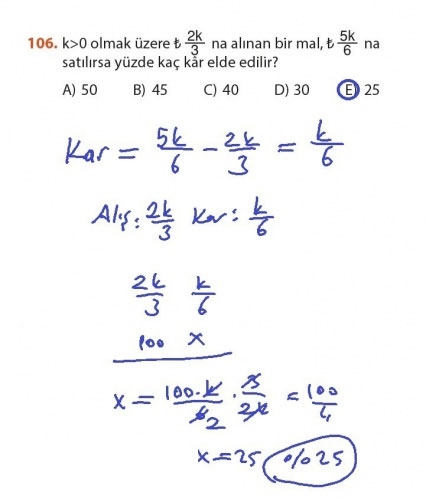 106. k>0 olmak üzere ₺ 2k/3 na alınan bir mal, ₺ 5k/6 na
satılırsa yüzde kaç kâr elde edilir?
A) 50 B) 45 C) 40 D) 30 E) 25
Kar = 5k/6 - 2k/3 = k/6
Alış: 2k/3 Kar: k/6
2k/3 k/6
100 x
x = 100.k/6 2 . 3/2k = 100/4
x = 25 %25